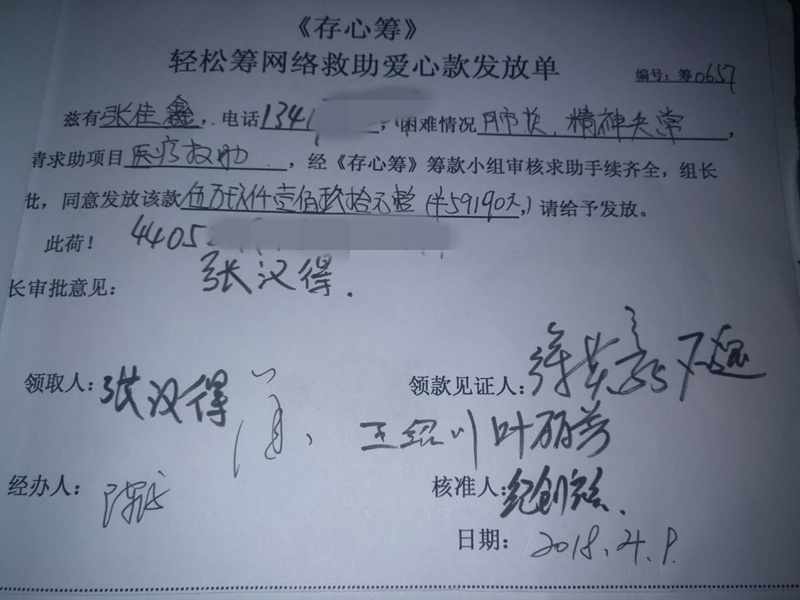 《存心筹》
轻松筹网络救助爱心款发放单
编号：筹0657
兹有张佳鑫，电话1341，困难情况肺炎、精神失常，
请求助项目医疗救助，经《存心筹》筹款小组审核求助手续齐全，组长
批，同意发放该款伍万玖仟壹佰玖拾元整(￥59190元)请给予发放。
此荷！ 4405
张汉得．
长审批意见：
领取人：张汉得 领款见证人：
王绍川 叶丽芳
经办人： 核准人：
日期：2018.4.9.